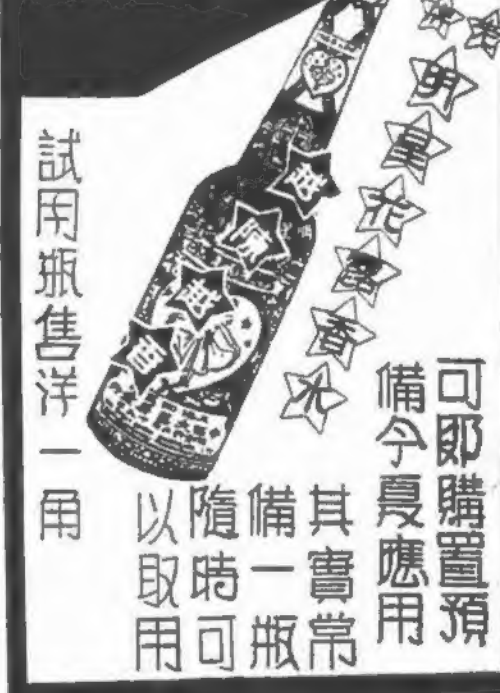 明星花露香水
越陳越香
可即購置預
備今夏應用
其實常
備一瓶
隨時可
以取用
試用瓶售洋一角